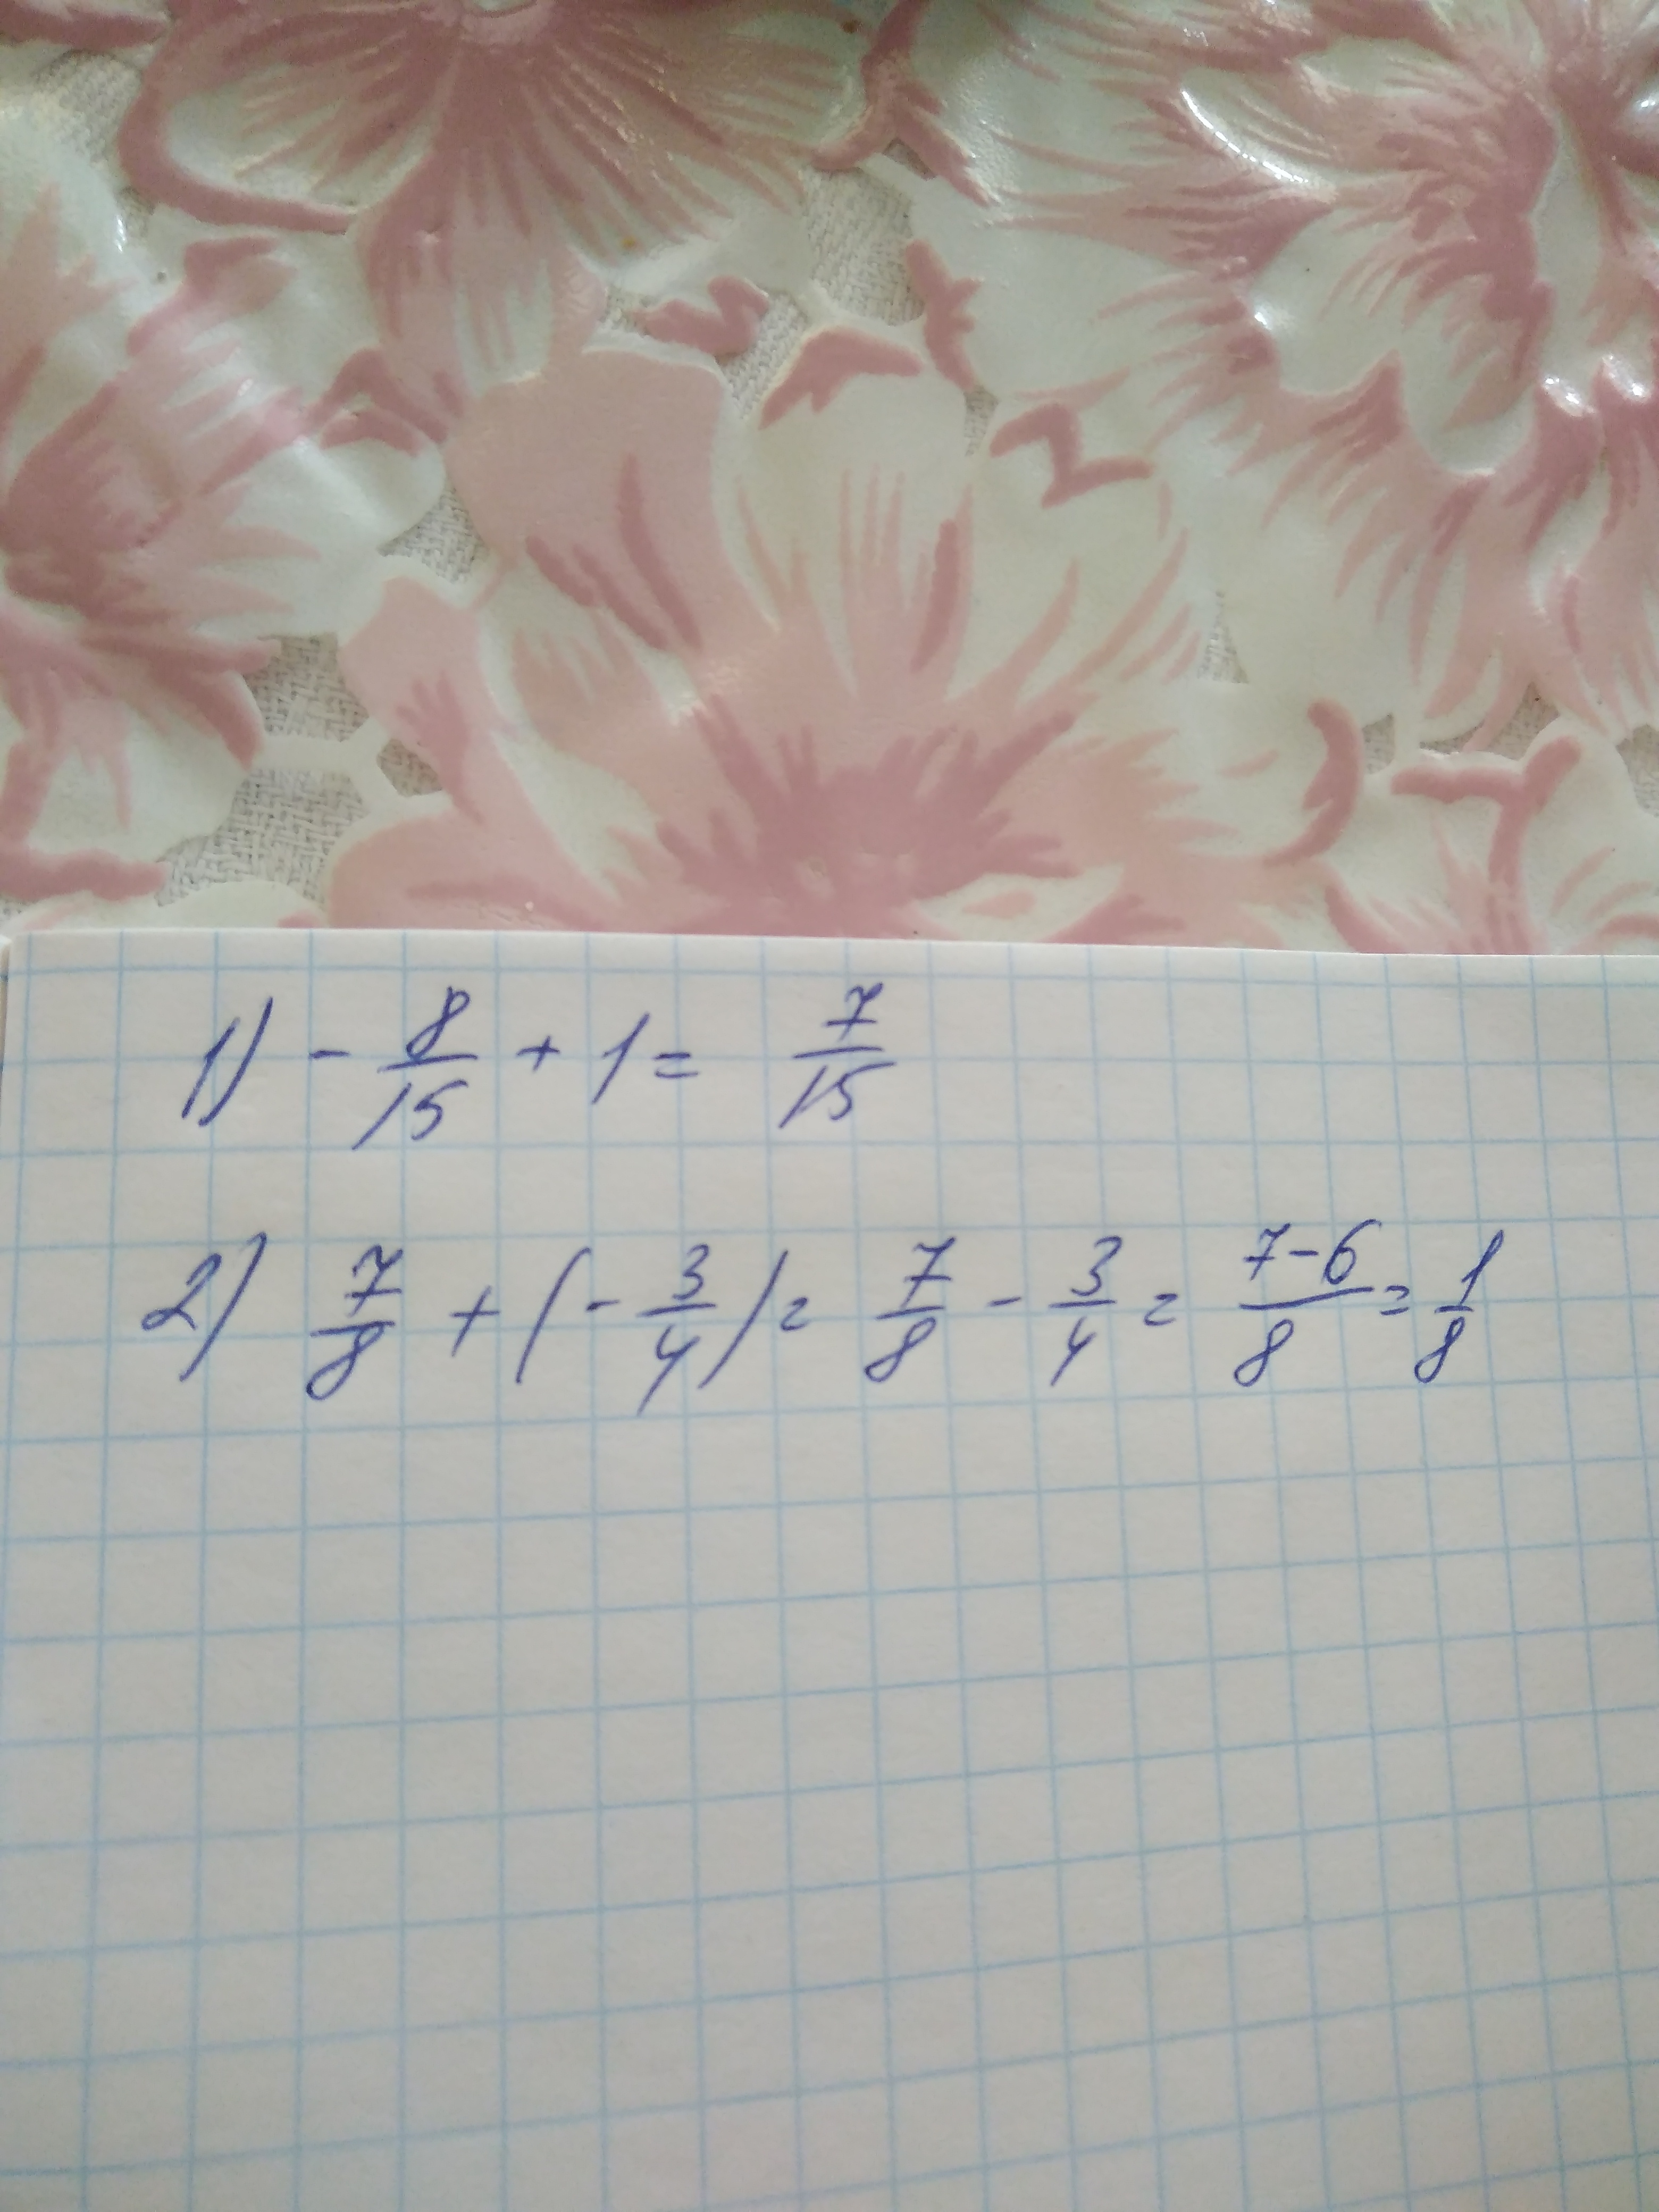 1) - 8/15 + 1 = 7/15
2) 7/8 + (- 3/4) = 7/8 - 3/4 = 7-6/8 = 1/8